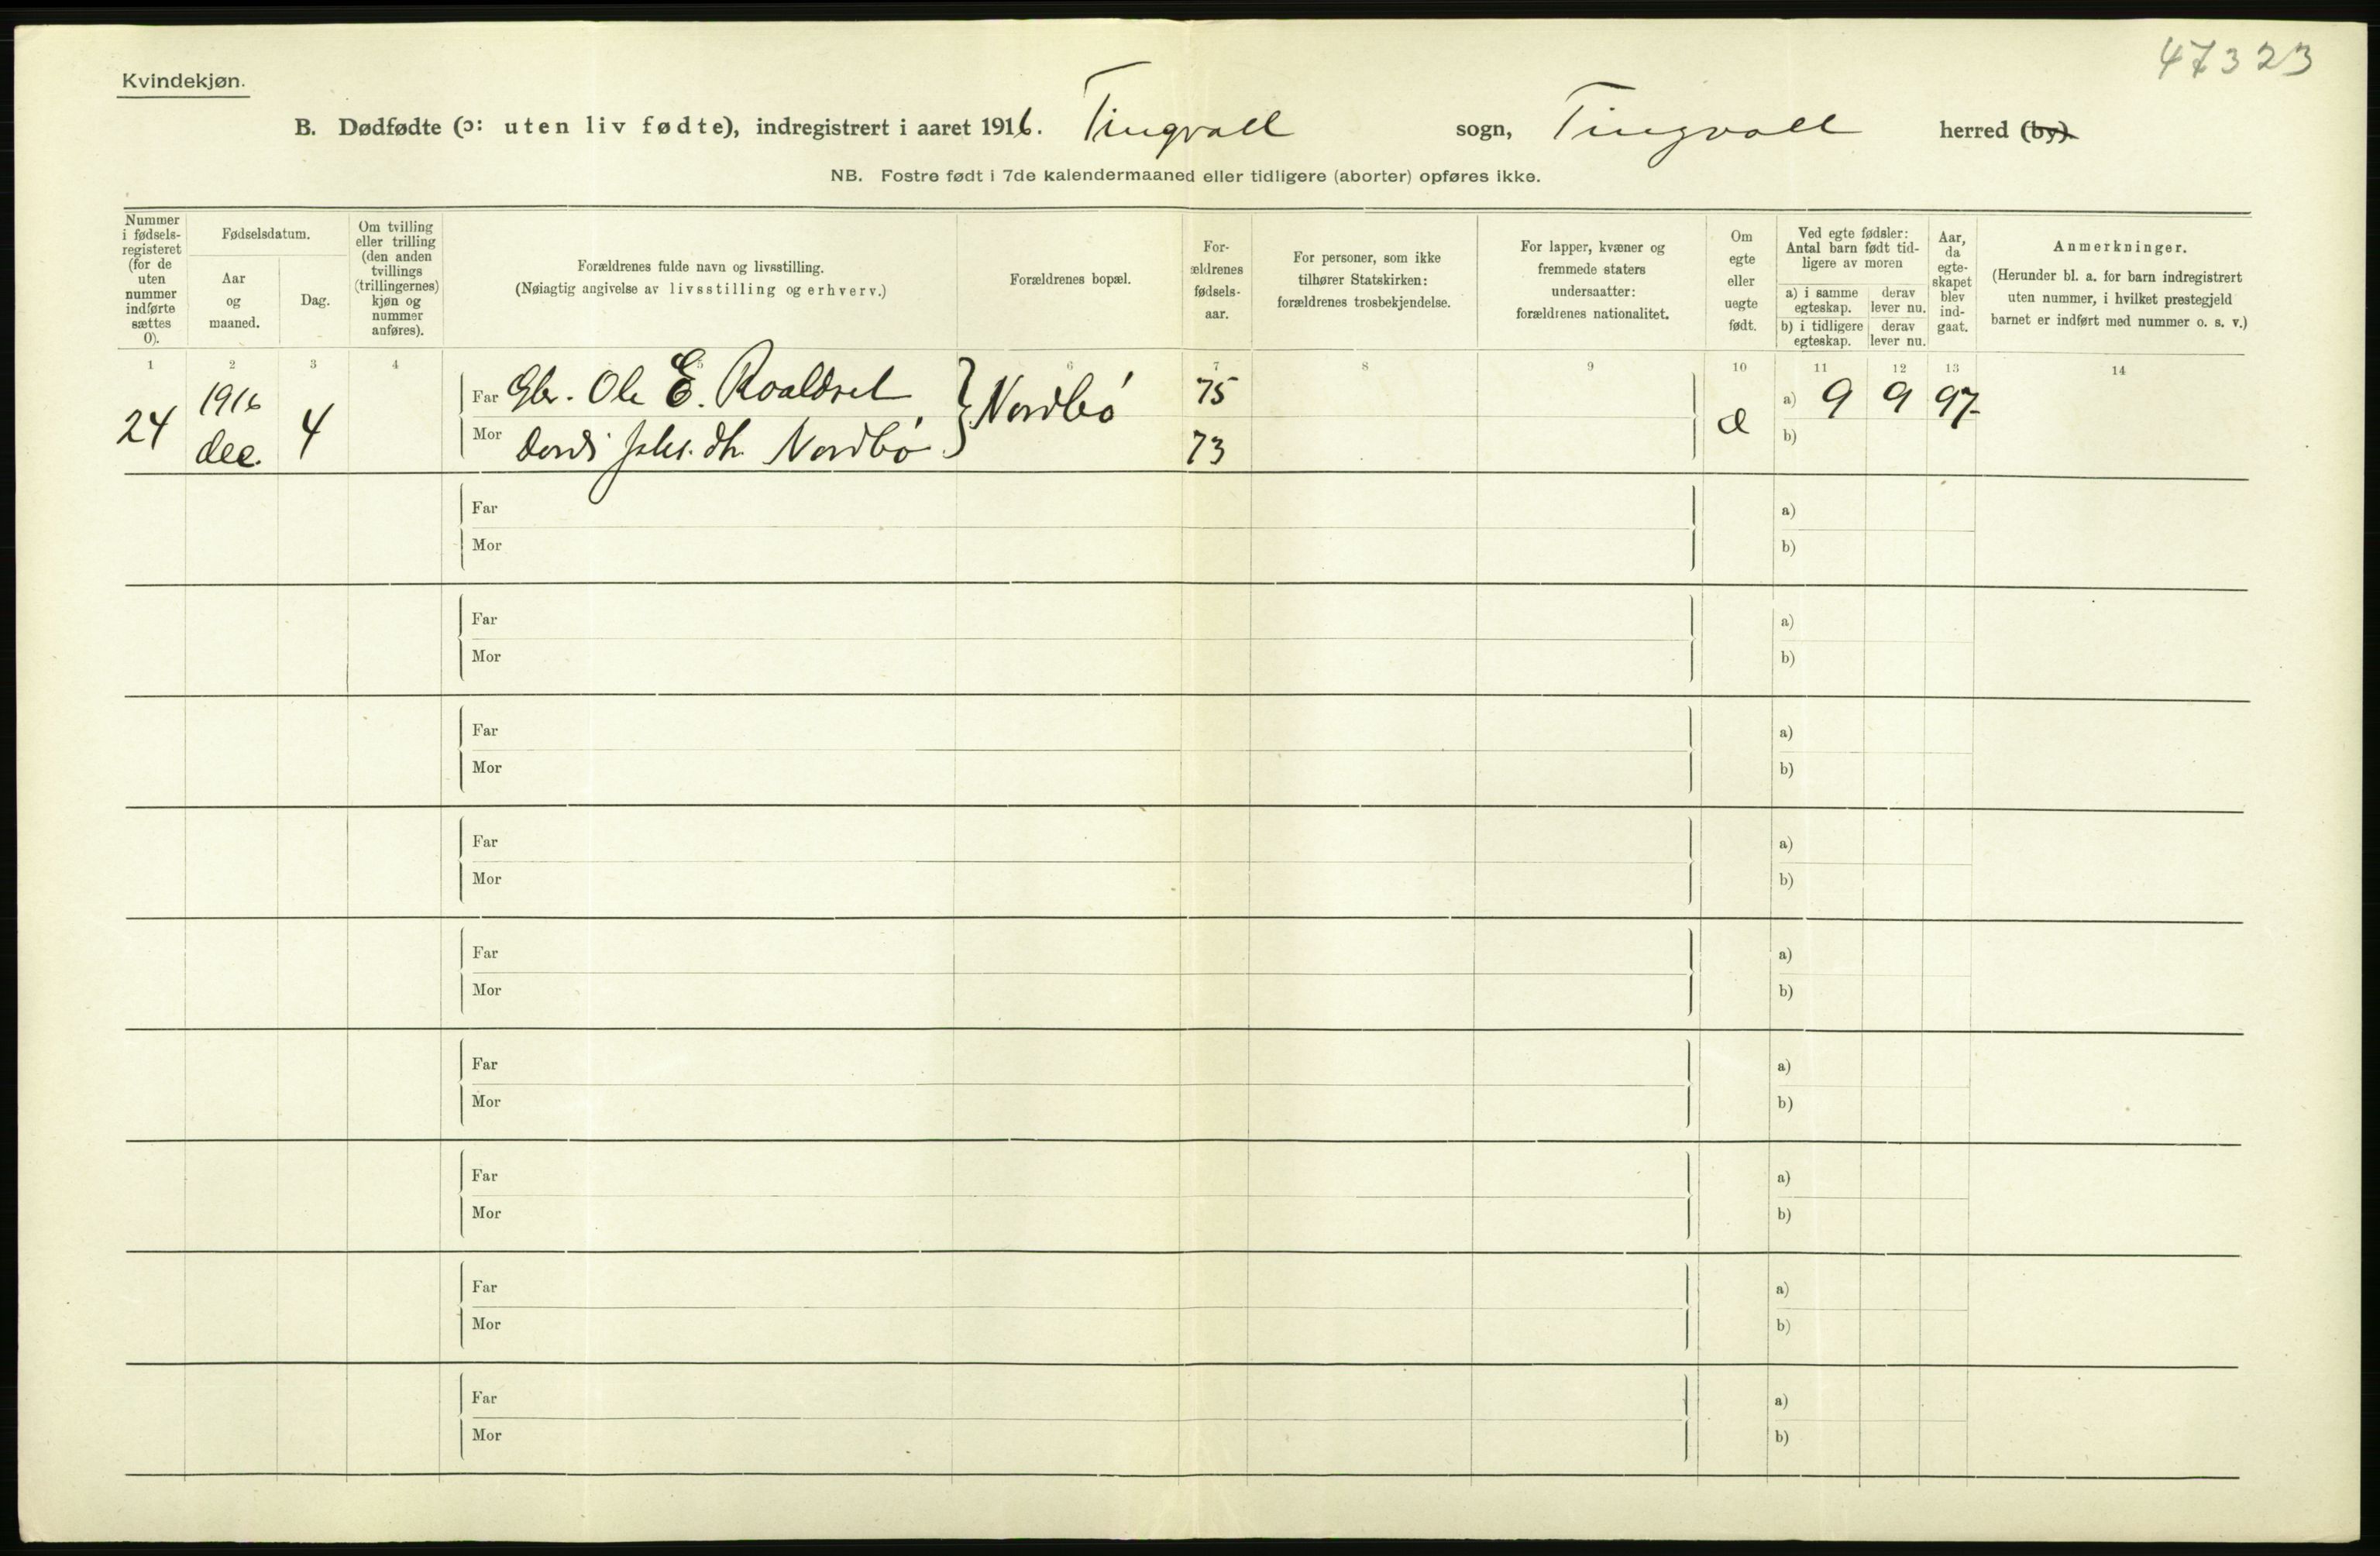 47323
Kvindekjøn.
B. Dødfødte (ɔ: uten liv fødte), indregistrert i aaret 1916. Tingvoll sogn, Tingvoll herred (by).
NB. Fostre født i 7de kalendermaaned eller tidligere (aborter) opføres ikke.
Nummer i fødsels-registeret (for de uten nummer indførte sættes 0).
Fødselsdatum.
Aar og maaned.
Dag.
Om tvilling eller trilling (den anden tvillings (trillingernes) kjøn og nummer anføres).
Forældrenes fulde navn og livsstilling.
(Nøiagtig angivelse av livsstilling og erhverv.)
Forældrenes bopæl.
For-ældrenes fødsels-aar.
For personer, som ikke tilhører Statskirken: forældrenes trosbekjendelse.
For lapper, kvæner og fremmede staters undersaatter: forældrenes nationalitet.
Om egte eller uegte født.
Ved egte fødsler: Antal barn født tid-ligere av moren
a) i samme egteskap.
derav lever nu.
b) i tidligere egteskap.
derav lever nu.
Aar, da egte-skapet blev ind-gaat.
Anmerkninger.
(Herunder bl. a. for barn indregistrert uten nummer, i hvilket prestegjeld barnet er indført med nummer o. s. v.)
1 2 3 4 5 6 7 8 9 10 11 12 13 14
24 1916 dec. 4
Far Gbr. Ole E. Roaldset } Nordbó 75
Mor Dordi Johs. dtr. Nordbó 73
e a) 9 9 97
b)
Far a)
Mor b)
Far a)
Mor b)
Far a)
Mor b)
Far a)
Mor b)
Far a)
Mor b)
Far a)
Mor b)
Far a)
Mor b)
Far a)
Mor b)
Far a)
Mor b)